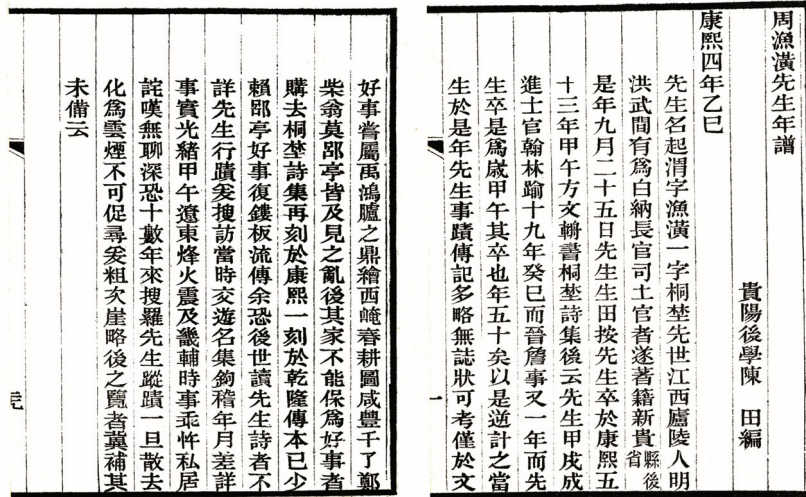 周漁潢先生年譜
貴陽後學陳　田編
康熙四年乙巳
先生名起渭字漁潢一字桐埜先世江西廬陵人明
洪武間有爲白納長官司土官者遂著籍新貴縣後省
是年九月二十五日先生生田按先生卒於康熙五
十三年甲午方文輈書桐埜詩集後云先生甲戌成
進士官翰林踰十九年癸巳而晉詹事又一年而先
生卒是爲歲甲午其卒也年五十矣以是逆計之當
生於是年先生事蹟傳記多略無誌狀可考僅於文
一
好事嘗屬禹鴻臚之鼎繪西崦春耕圖咸豐千了鄭
柴翁莫郘亭皆及見之亂後其家不能保爲好事者
購去桐埜詩集再刻於康熙一刻於乾隆傳本已少
賴郘亭好事復鏤板流傳余恐後世讀先生詩者不
詳先生行蹟爰搜訪當時交遊名集鉤稽年月差詳
事實光緒甲午遼東烽火震及畿輔時事乖忤私居
詫嘆無聊深恐十數年來搜羅先生蹤蹟一旦散去
化爲雲煙不可促尋爰粗次崖略後之覽者冀補其
未備云